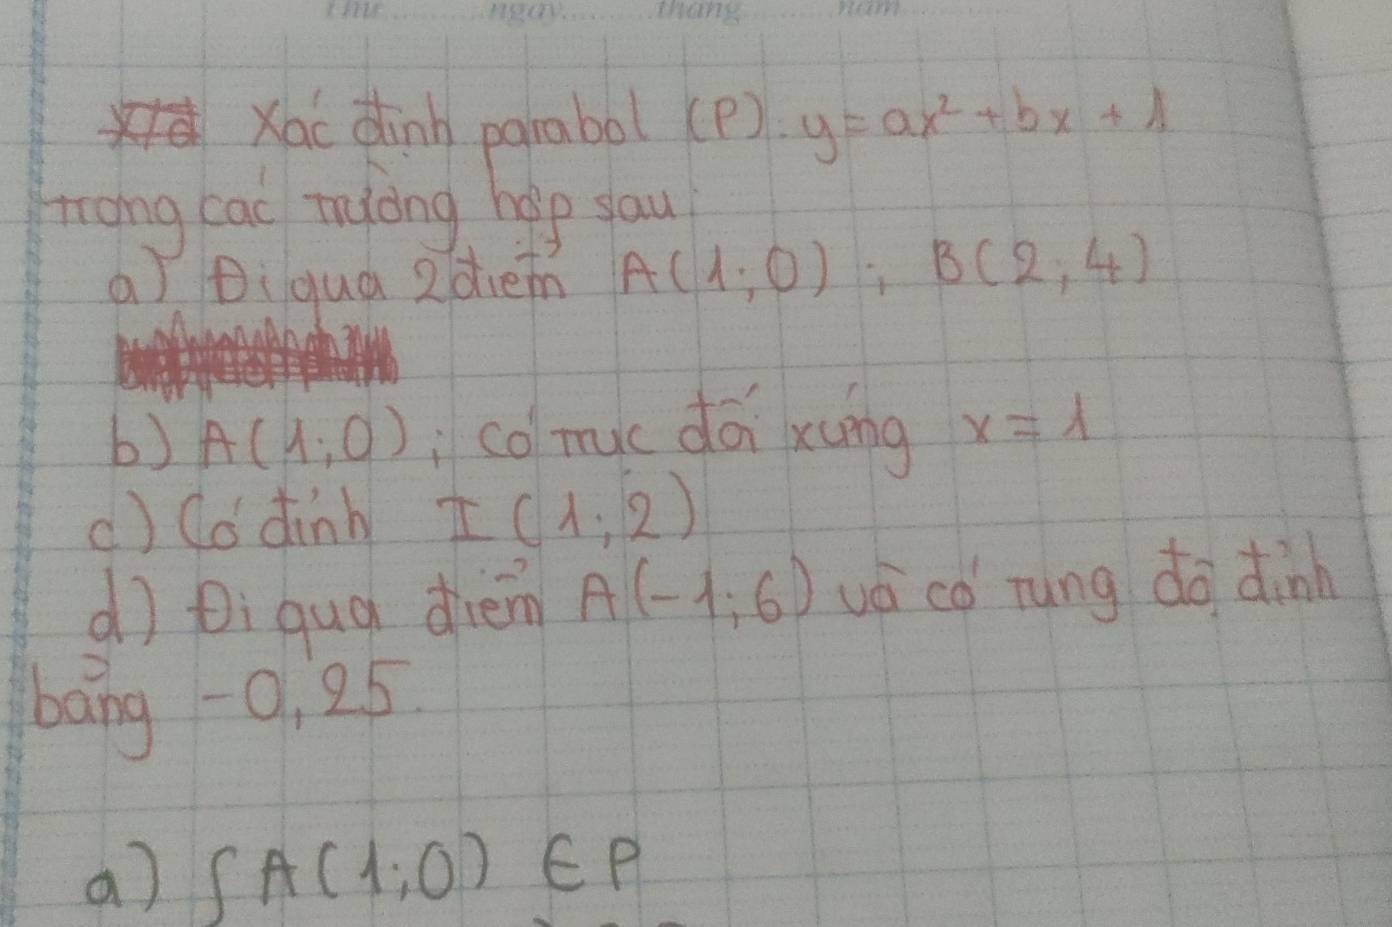 Thứ ngày tháng năm
Xác định parabol (P). y = ax² + bx + 1
trong các trường hợp sau
a) Đi qua 2 điểm A(1;0) ; B(2;4)
b) A(1;0); có trục đối xứng x = 1
c) Có đỉnh I(1;2)
d) Đi qua điểm A(-1;6) và có tung độ đỉnh
bằng -0,25.
a) { A(1;0) ∈ P